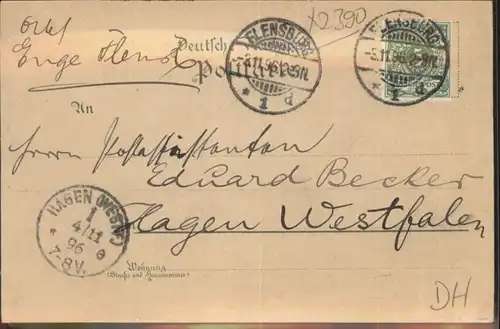 X2390
Deutsche
Postkarte
FLENSBURG
5.11.96.2-3N.
* 1 d
FLENSBURG
5.11.96.2-3N.
* 1 d
An
Herrn Postassistenten
Eduard Becker
Hagen Westfalen
HAGEN (WESTF.)
1
4/11
96
7-8V.
* e
Wohnung
(Straße und Hausnummer)
DH